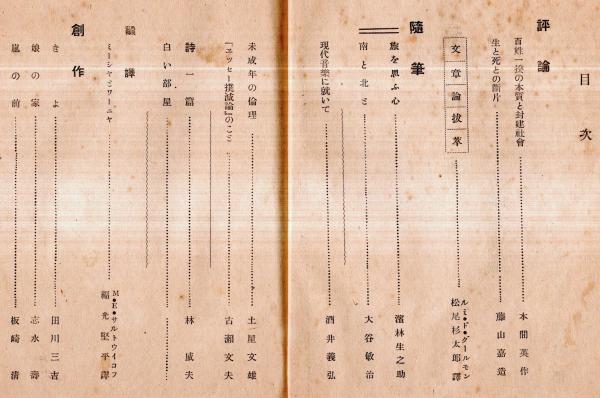 目次
評論
百姓一揆の本質と封建社會 本間英作
生と死との斷片 藤山嘉造
文章論拔萃 ルミ・ド・グールモン
松尾杉太郎譯
隨筆
旅を思ふ心 濱林生之助
南と北と 大谷敏治
現代音樂に就いて 酒井義弘
未成年の倫理 土星文雄
『エッセー撲滅論』のこと 古瀬文夫
詩一篇 林威夫
白い部屋
飜譯
ミーシャとワーニャ M・E・サルトウイコフ
福光堅平譯
創作
きよ 田川三吉
娘の家 志水壽
嵐の前 板崎清